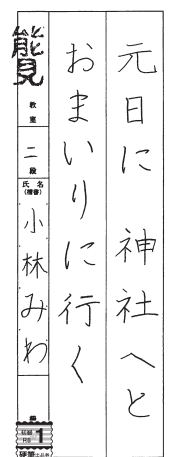 元日に 神社へと
おまいりに行く
教室
二段
氏名
(楷書)
小林みわ
1